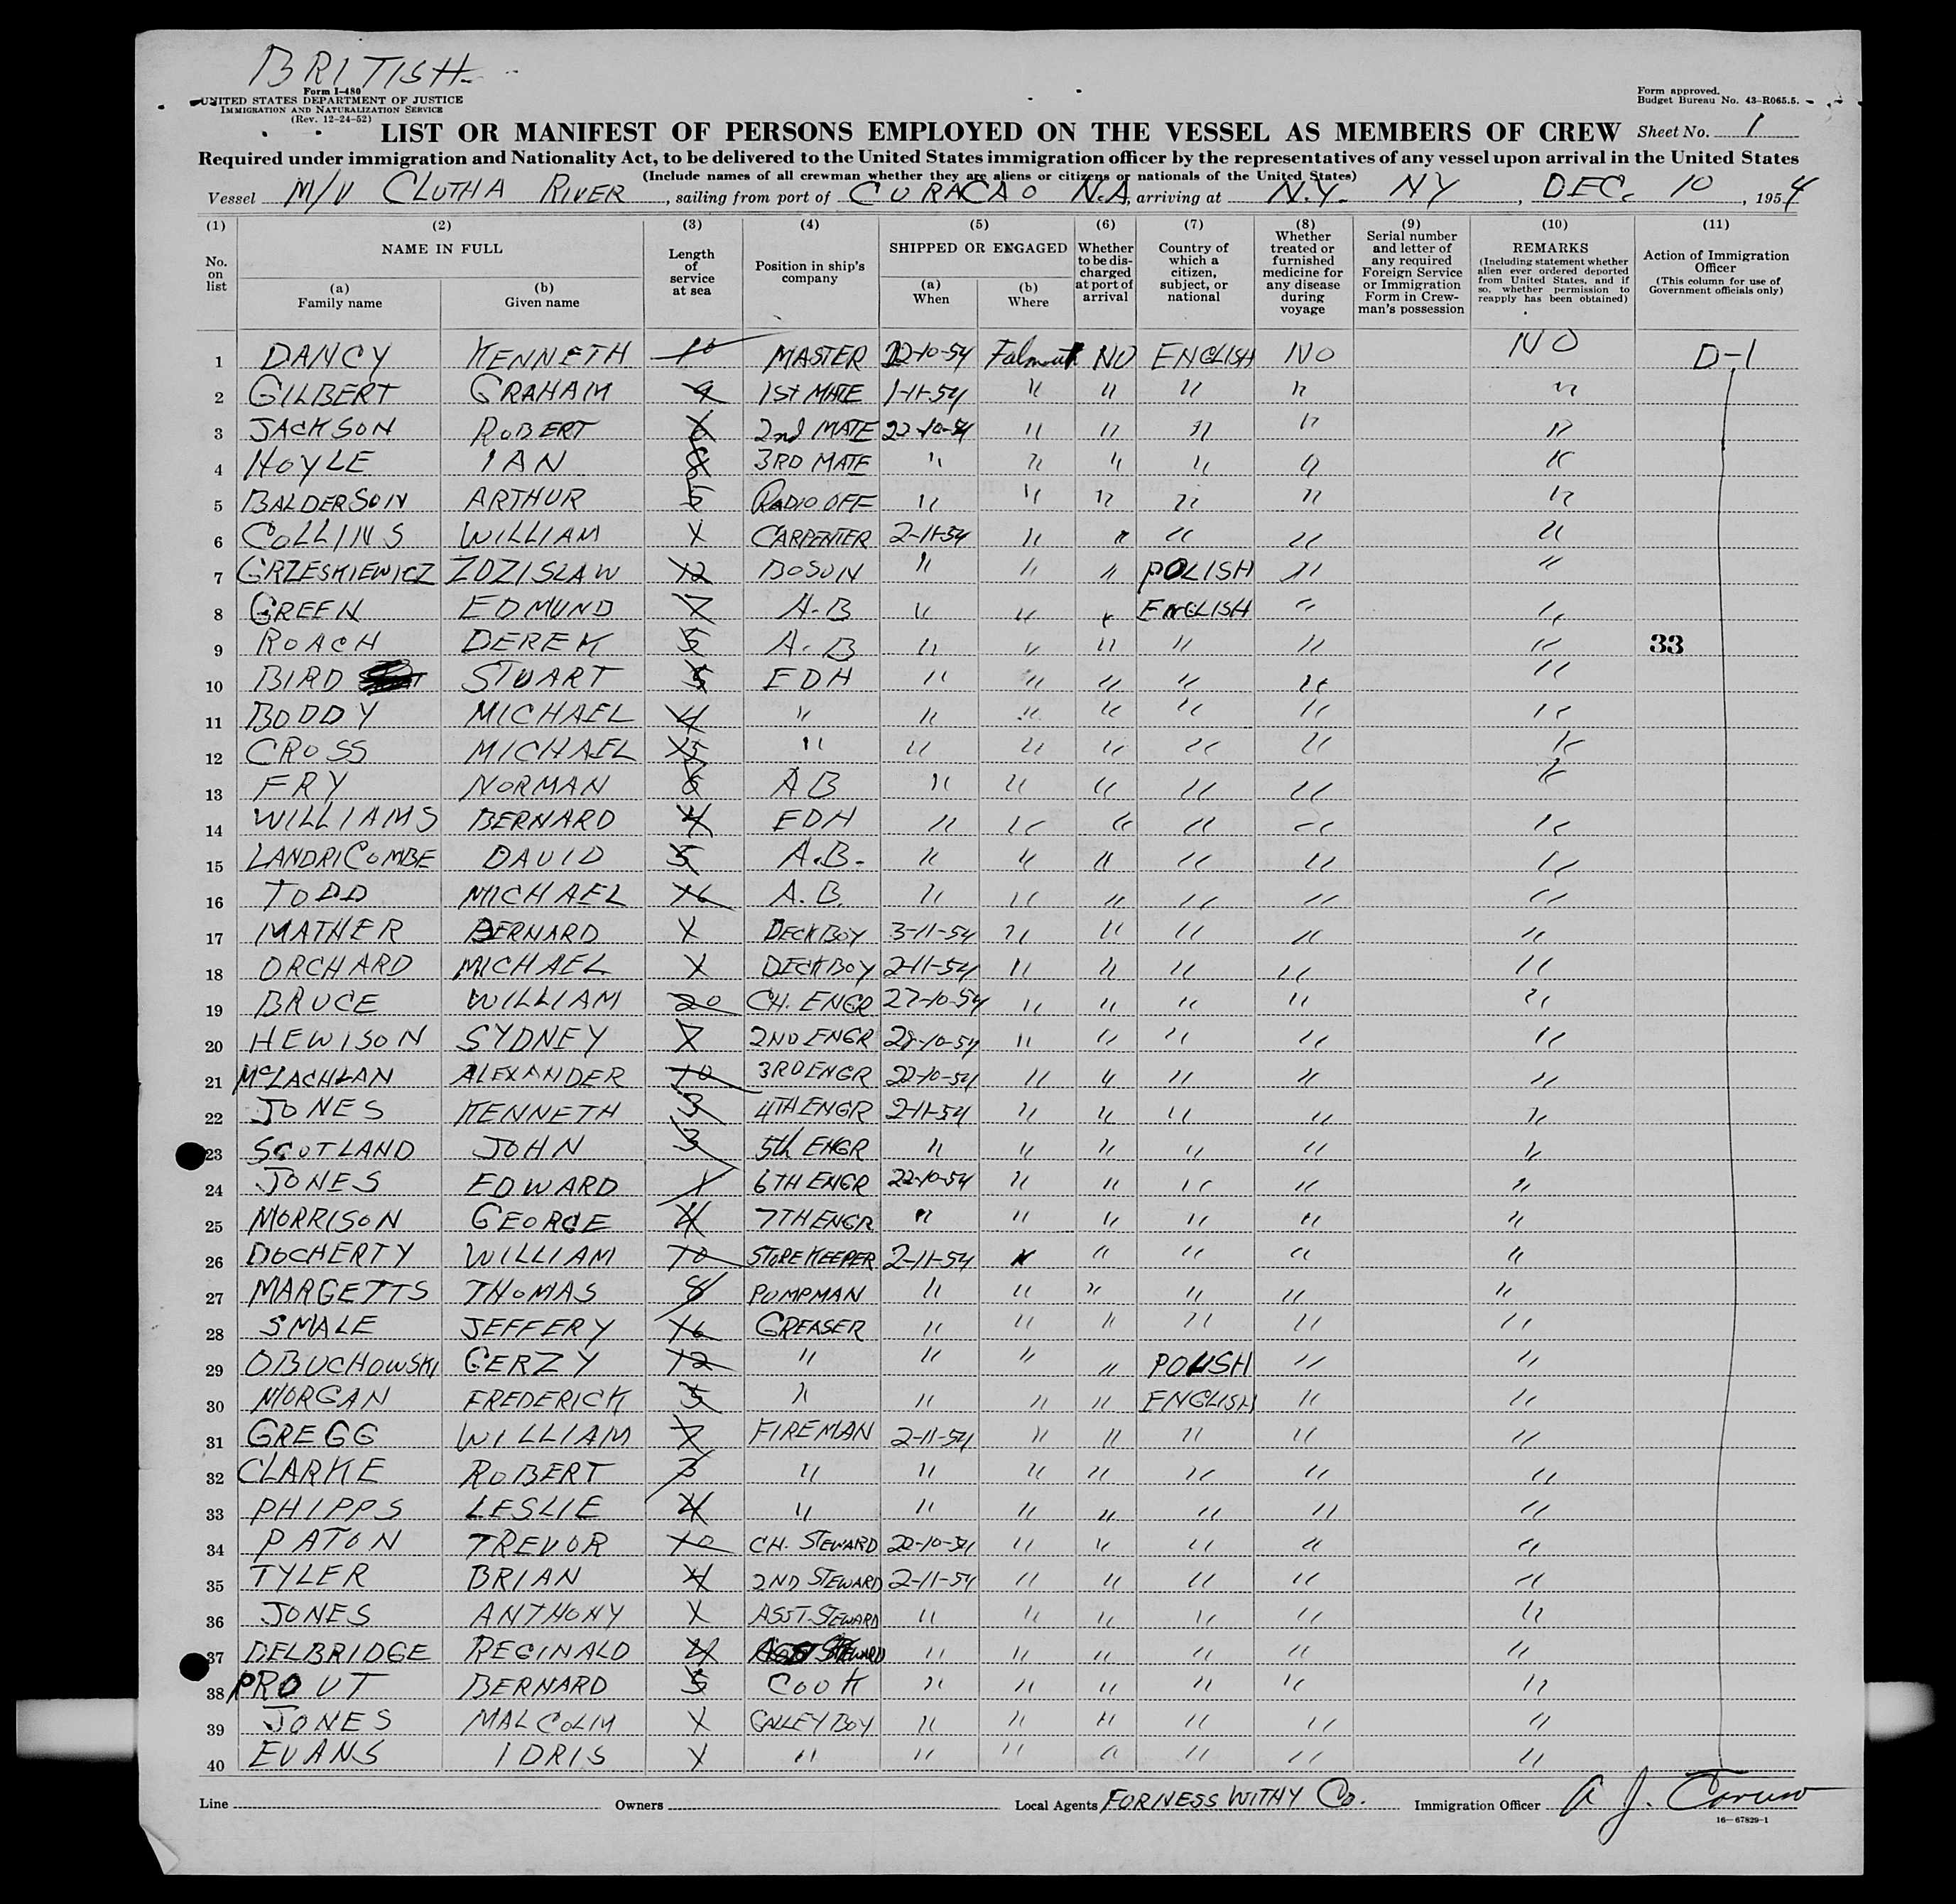 BRITISH
Form I-480
UNITED STATES DEPARTMENT OF JUSTICE
IMMIGRATION AND NATURALIZATION SERVICE
(Rev. 12-24-52)
Form approved.
Budget Bureau No. 43-R065.5.
LIST OR MANIFEST OF PERSONS EMPLOYED ON THE VESSEL AS MEMBERS OF CREW Sheet No. 1
Required under immigration and Nationality Act, to be delivered to the United States immigration officer by the representatives of any vessel upon arrival in the United States
(Include names of all crewman whether they are aliens or citizens or nationals of the United States)
Vessel M/V CLUTHA RIVER, sailing from port of CURACAO N.A, arriving at N.Y. NY, DEC. 10, 1954
(1) No. on list
(2) NAME IN FULL (a) Family name (b) Given name
(3) Length of service at sea
(4) Position in ship's company
(5) SHIPPED OR ENGAGED (a) When (b) Where
(6) Whether to be discharged at port of arrival
(7) Country of which a citizen, subject, or national
(8) Whether treated or furnished medicine for any disease during voyage
(9) Serial number and letter of any required Foreign Service or Immigration Form in Crewman's possession
(10) REMARKS (Including statement whether alien ever ordered deported from United States, and if so, whether permission to reapply has been obtained)
(11) Action of Immigration Officer (This column for use of Government officials only)
1 DANCY KENNETH 10 MASTER 22-10-54 Falmouth NO ENGLISH NO NO D-1
2 GILBERT GRAHAM 9 1ST MATE 1-11-54 " " " " "
3 JACKSON ROBERT 2nd MATE 22-10-54 " " " " "
4 HOYLE IAN 3RD MATE " " " " " "
5 BALDERSON ARTHUR 5 RADIO OFF " " " " " "
6 COLLINS WILLIAM X CARPENTER 2-11-54 " " " " "
7 GRZESKIEWICZ ZDZISLAW 12 BOSUN " " " POLISH " "
8 GREEN EDMUND 7 A-B " " " ENGLISH " "
9 ROACH DEREK 5 A.B " " " " " " 33
10 BIRD STUART 5 EDH " " " " " "
11 BODDY MICHAEL 4 " " " " " " "
12 CROSS MICHAEL " " " " " " "
13 FRY NORMAN 6 AB " " " " " "
14 WILLIAMS BERNARD 4 EDH " " " " " "
15 LANDRICOMBE DAVID 5 A.B. " " " " " "
16 TODD MICHAEL 16 A.B. " " " " " "
17 MATHER BERNARD X DECK BOY 3-11-54 " " " " "
18 ORCHARD MICHAEL X DECK BOY 2-11-54 " " " " "
19 BRUCE WILLIAM 20 CH. ENGR 27-10-54 " " " " "
20 HEWISON SYDNEY 7 2ND ENGR 28-10-54 " " " " "
21 McLACHLAN ALEXANDER 10 3RD ENGR 22-10-54 " " " " "
22 JONES KENNETH 3 4TH ENGR 2-11-54 " " " " "
23 SCOTLAND JOHN 3 5th ENGR " " " " " "
24 JONES EDWARD 1 6TH ENGR 22-10-54 " " " " "
25 MORRISON GEORGE 4 7TH ENGR " " " " " "
26 DOCHERTY WILLIAM 10 STOREKEEPER 2-11-54 " " " " "
27 MARGETTS THOMAS 8 PUMPMAN " " " " " "
28 SMALE JEFFERY 16 GREASER " " " " " "
29 OBUCHOWSKI GERZY 12 " " " " POLISH " "
30 MORGAN FREDERICK 5 " " " " ENGLISH " "
31 GREGG WILLIAM 7 FIREMAN 2-11-54 " " " " "
32 CLARKE ROBERT 3 " " " " " " "
33 PHIPPS LESLIE 4 " " " " " " "
34 PATON TREVOR 10 CH. STEWARD 22-10-54 " " " " "
35 TYLER BRIAN 4 2ND STEWARD 2-11-54 " " " " "
36 JONES ANTHONY X ASST-STEWARD " " " " " "
37 DELBRIDGE REGINALD 4 STEWARD " " " " " "
38 PROUT BERNARD 5 COOK " " " " " "
39 JONES MALCOLM X GALLEY BOY " " " " " "
40 EVANS IDRIS X " " " " " " "
Line Owners Local Agents FORNESS WITHY Co. Immigration Officer A J. Caruso
16-67829-1